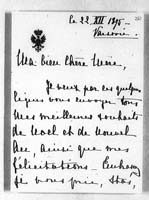 le 22 XII 1895
Varsovie.
Ma bien chère
Je veux par ces quelques
lignes vous envoyer tous
mes meilleurs souhaits
de Noël et de Nouvel
An, ainsi que mes
félicitations.
Je vous prie,